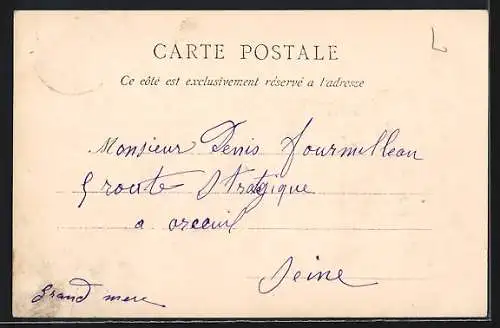 CARTE POSTALE
Ce côté est exclusivement réservé a l'adresse
Monsieur Denis Fourmilleau
5 route Stratgique
a arceuil
Seine
Grand mere